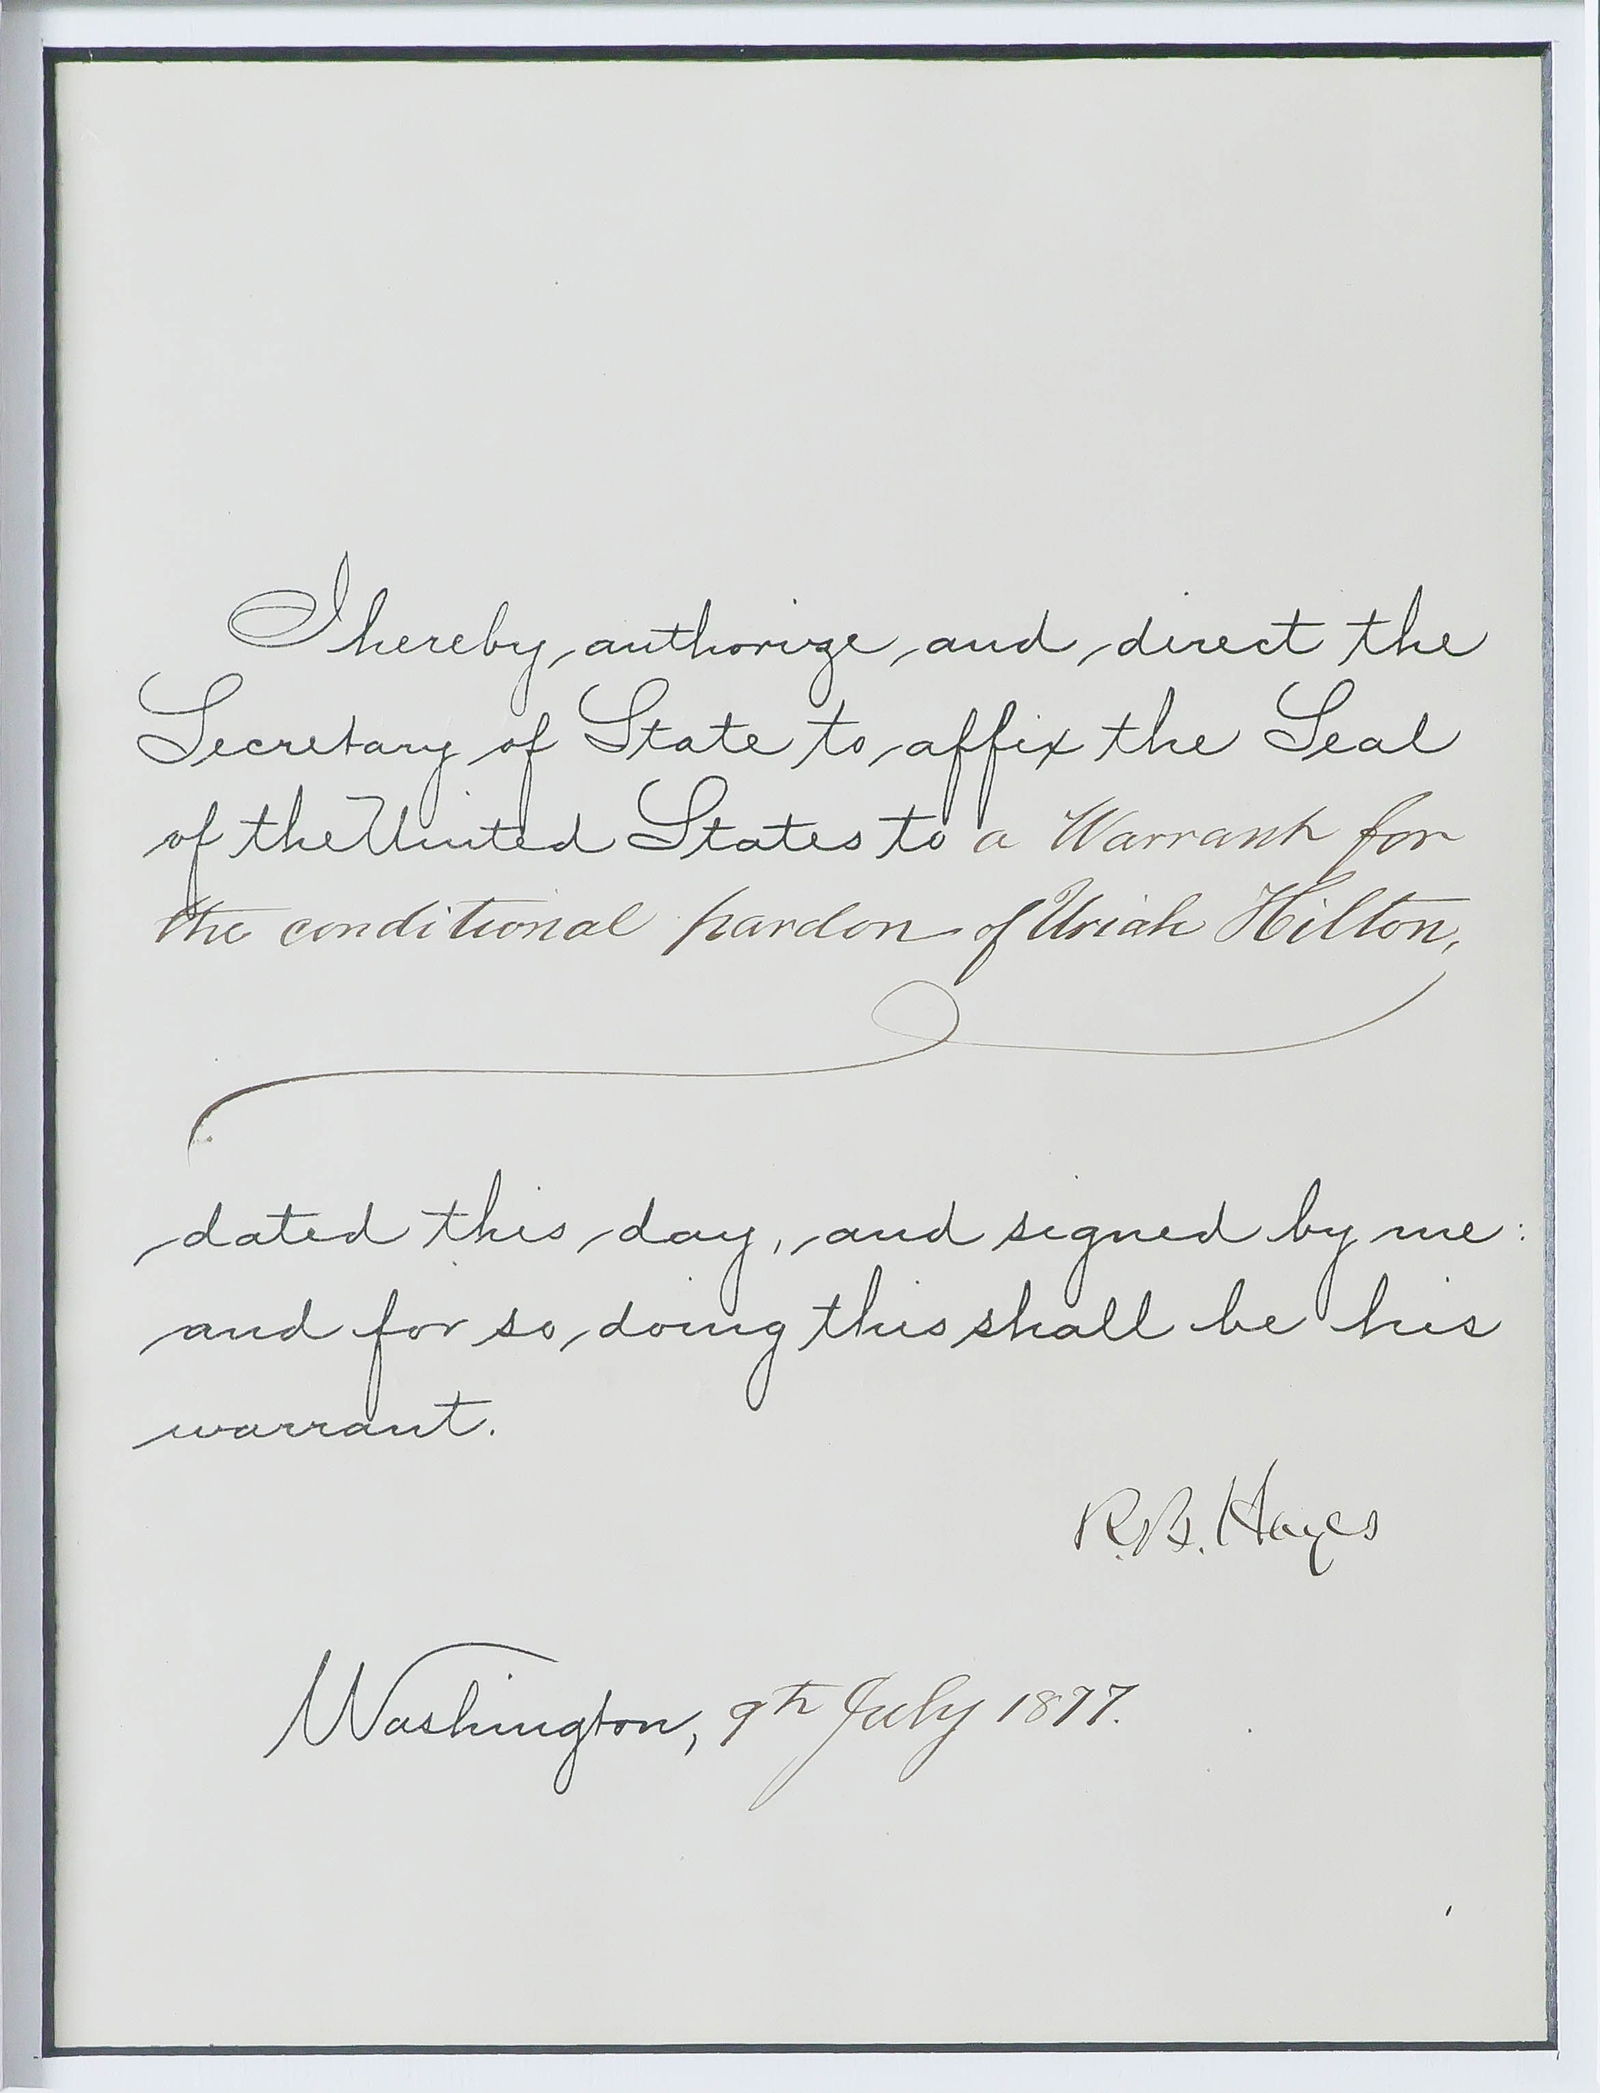 I hereby authorize and direct the
Secretary of State to affix the Seal
of the United States to a Warrant for
the conditional pardon of Uriah Hilton,
dated this day, and signed by me:
and for so doing this shall be his
warrant.
R.B. Hayes
Washington, 9th July 1877.